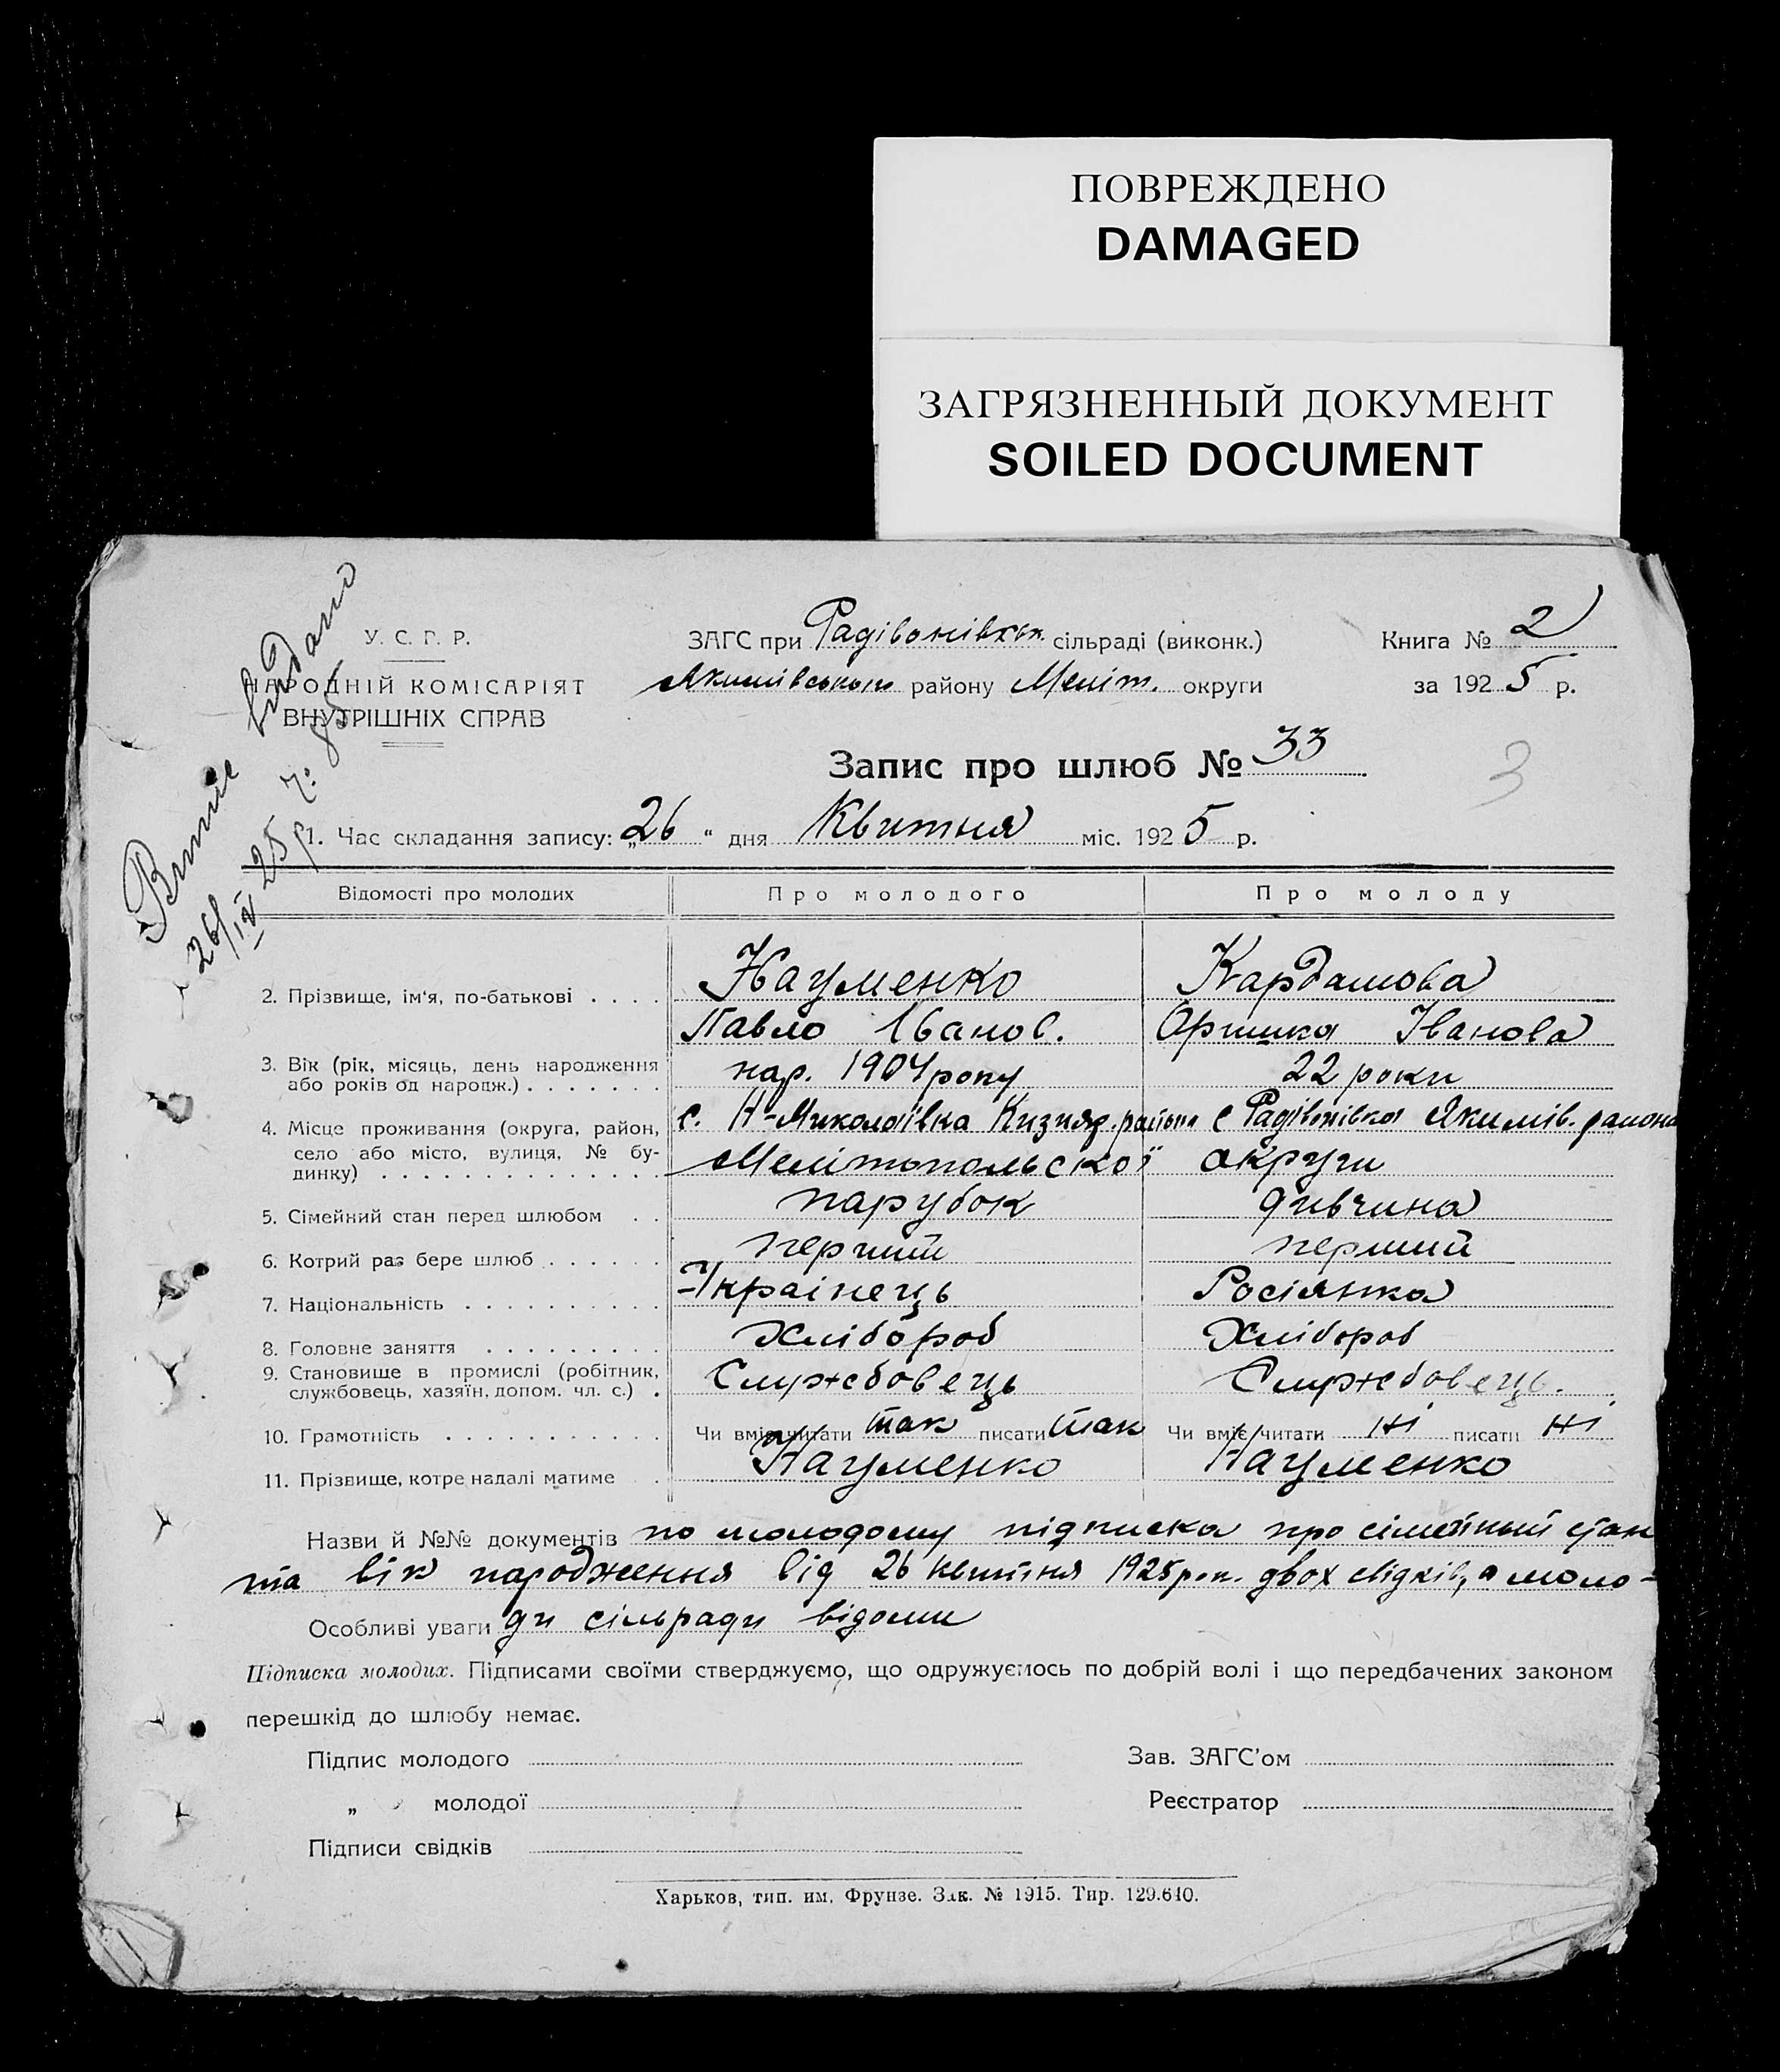 ПОВРЕЖДЕНО
DAMAGED
ЗАГРЯЗНЕННЫЙ ДОКУМЕНТ
SOILED DOCUMENT
У. С. Р. Р.
НАРОДНІЙ КОМІСАРІЯТ
ВНУТРІШНІХ СПРАВ
видано
26/IV 25 р.
ЗАГС при Радівонівськ. сільраді (виконк.)
Якимівського району Меліт. округи
Книга № 2
за 1925 р.
Запис про шлюб № 33
3
1. Час складання запису: „26“ дня Квітня міс. 1925 р.
Відомості про молодих Про молодого Про молоду
2. Прізвище, ім'я, по-батькові . . . . Науменко Кардашова
Павло Іванов. Оришка Іванова
3. Вік (рік, місяць, день народження або років од народж.) . . . . . . . нар. 1904 року 22 роки
4. Місце проживання (округа, район, село або місто, вулиця, № будинку) . . . . . . . . . . . . . . с. Н-Миколаївка Кизияр. району с Радівонівка Якимів. района
Мелітопольської округи
5. Сімейний стан перед шлюбом . . парубок дивчина
6. Котрий раз бере шлюб . . . . . . перший перший
7. Національність . . . . . . . . . . Українець Росіянка
8. Головне заняття . . . . . . . . . Хлібороб Хлібороб
9. Становище в промислі (робітник, службовець, хазяїн, допом. чл. с.) . Службовець Службовець.
10. Грамотність . . . . . . . . . . . Чи вміє читати так писати так Чи вміє читати ні писати ні
11. Прізвище, котре надалі матиме . Науменко Науменко
Назви й №№ документів по молодому підписка про сімейный стан
та вік народження від 26 квітня 1925 рок. двох свідків, а моло-
Особливі уваги ди сільради відоми
Підписка молодих. Підписами своїми стверджуємо, що одружуємось по добрій волі і що передбачених законом
перешкід до шлюбу немає.
Підпис молодого
Зав. ЗАГС'ом
„ молодої
Реєстратор
Підписи свідків
Харьков, тип. им. Фрунзе. Зак. № 1915. Тир. 129.640.